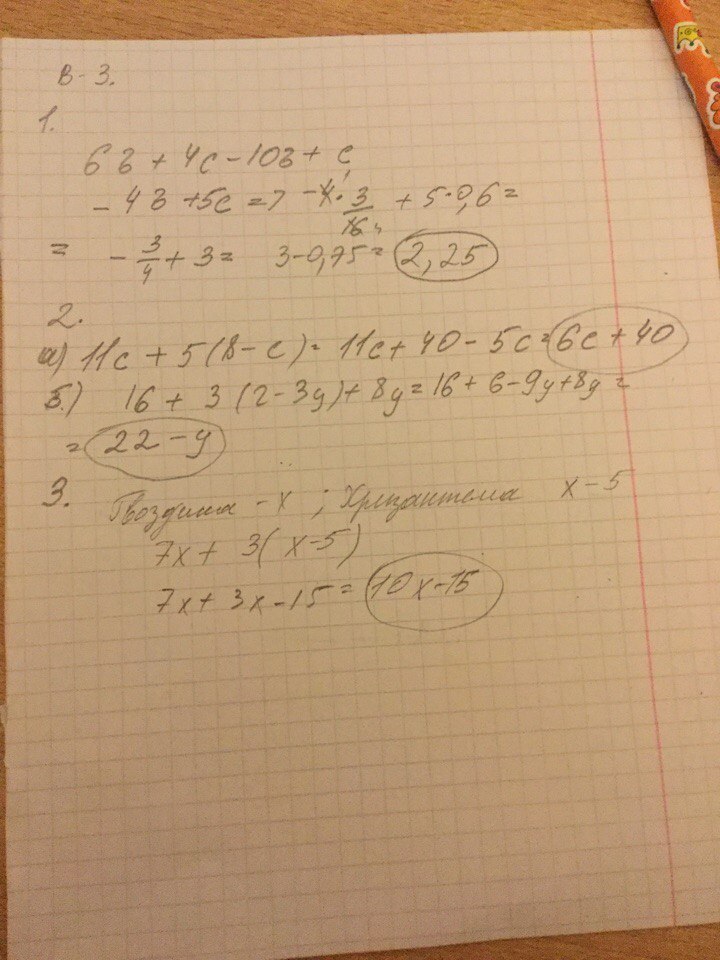 В-3.
1.
6в + 4с - 10в + с
- 4в + 5с => -4 · 3/16 + 5·0,6 =
= - 3/4 + 3 = 3-0,75 = 2,25
2.
а) 11с + 5(8-с) = 11с + 40 - 5с = 6с + 40
б) 16 + 3(2-3у) + 8у = 16 + 6 - 9у + 8у =
= 22 - у
3.
Гвоздика - х ; Хризантема х - 5
7х + 3(х-5)
7х + 3х - 15 = 10х - 15